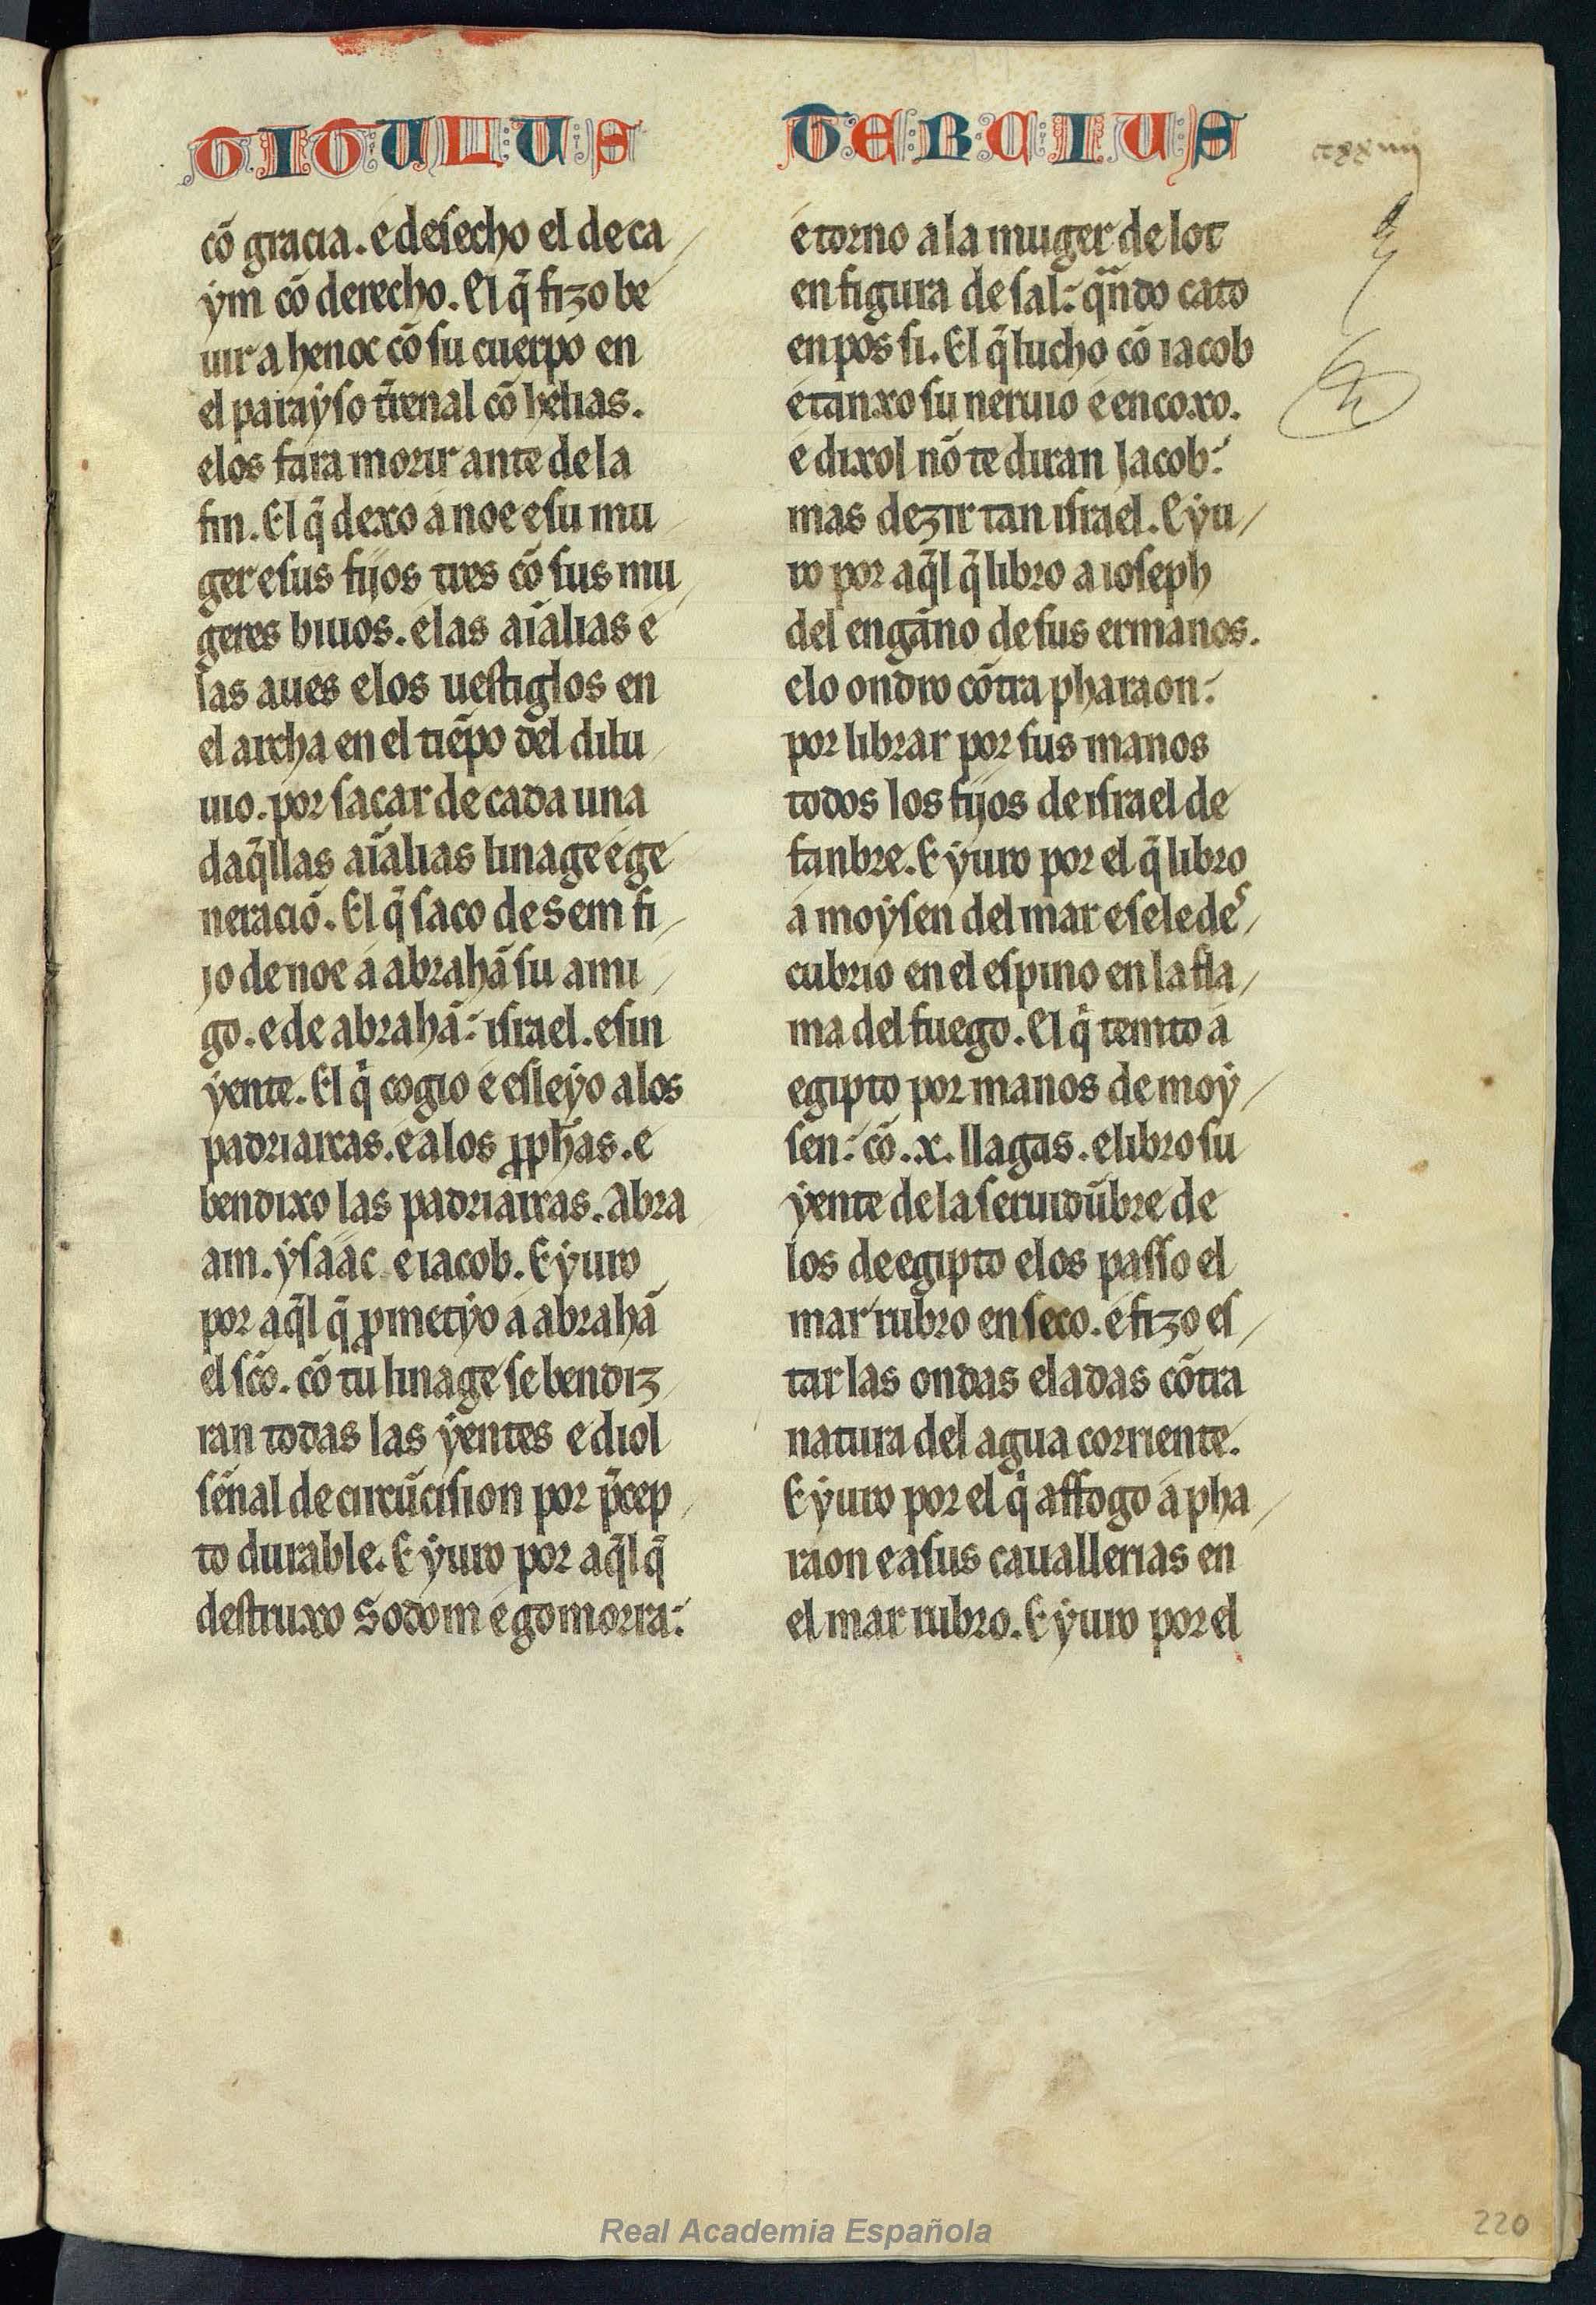 TITULUS
TERCIUS
cõ gracia. e desecho el de ca
ym cõ derecho. El q̃ fizo be
uir a henoc cõ su cuerpo en
el parayso t̃renal cõ helias.
e los fara morir ante de la
fin. El q̃ dexo a noe e su mu
ger e sus fijos tres cõ sus mu
geres biuos. e las aĩalias e
las aues e los uestiglos en
el archa en el tiẽpo del dilu
uio. por sacar de cada una
daq̃llas aĩalias linage e ge
neraciõ. El q̃ saco de sem fi
jo de noe a abrahã su ami
go. e de abrahã: israel. e sin
yente. El q̃ cogio e esleyo a los
padriarcas. e a los ꝓph̃as. e
bendixo las padriarcas. Abra
am. ysaac e iacob. E yuro
por aq̃l q̃ ꝓmetyo a abrahã
el sc̃o. cõ tu linage se bendiz
ran todas las yentes e diol
señal de circũcision por p̃cep
to durable. E yuro por aq̃l q̃
destruxo Sodom e gomorra:
e torno a la muger de lot
en figura de sal: qñdo cato
en pos si. El q̃ lucho cõ iacob
e tanxo su neruio e encoxo.
e dixol nõ te diran Jacob:
mas dezir tan israel. E yu
ro por aq̃l q̃ libro a ioseph
del engãno de sus ermanos.
e lo ondro cõtra pharaon:
por librar por sus manos
todos los fijos de israel de
fanbre. E yuro por el q̃ libro
a moysen del mar e sele des
cubrio en el espino en la fla
ma del fuego. El q̃ temto a
egipto por manos de moy
sen: cõ .x. llagas. e libro su
yente de la seruidũbre de
los de egipto e los passo el
mar rubro en seco. e fizo es
tar las ondas eladas cõtra
natura del agua corriente.
E yuro por el q̃ affogo a pha
raon e a sus cauallerias en
el mar rubro. E yuro por el
Real Academia Española
220